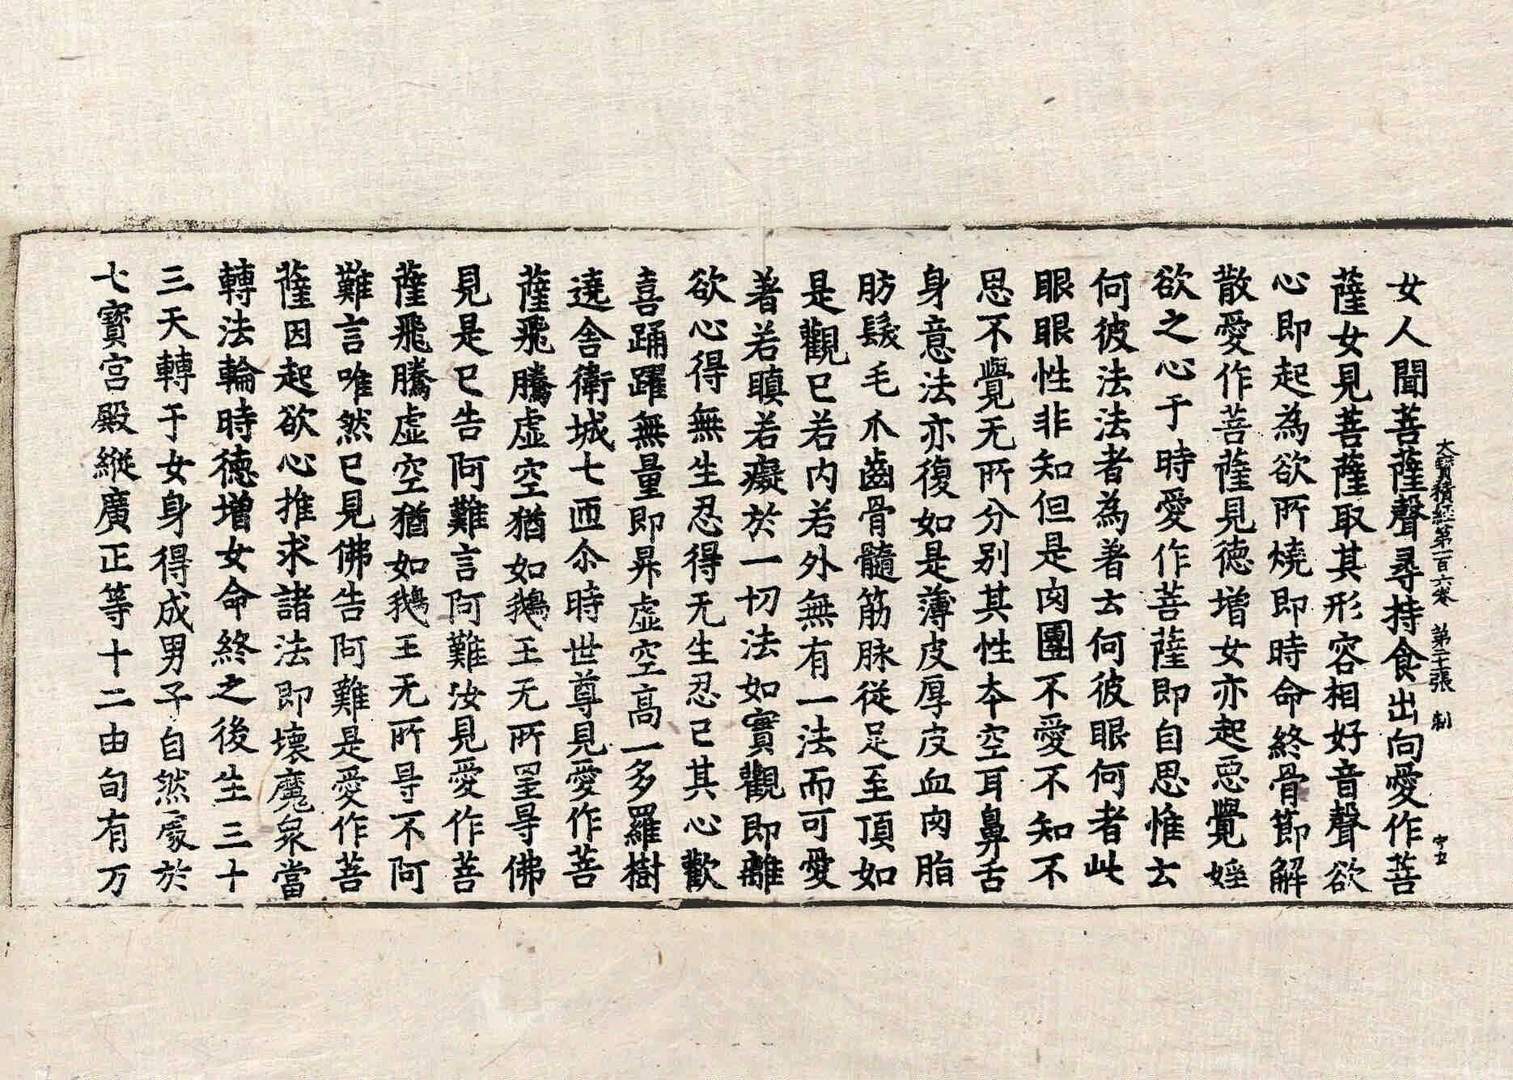 大寶積經第一百六卷 第二十張 制
女人聞菩薩聲尋持食出向愛作菩
薩女見菩薩取其形容相好音聲欲
心即起為欲所燒即時命終骨節解
散愛作菩薩見德增女亦起惡覺婬
欲之心于時愛作菩薩即自思惟云
何彼法法者為著云何彼眼何者此
眼眼性非知但是肉團不愛不知不
思不覺无所分别其性本空耳鼻舌
身意法亦復如是薄皮厚皮血肉脂
肪髮毛爪齒骨髓筋脉從足至頂如
是觀已若内若外無有一法而可愛
著若瞋若癡於一切法如實觀即離
欲心得無生忍得无生忍已其心歡
喜踊躍無量即昇虛空高一多羅樹
遶舍衛城七匝尒時世尊見愛作菩
薩飛騰虛空猶如鵝王无所罣㝵佛
見是已告阿難言阿難汝見愛作菩
薩飛騰虛空猶如鵝王无所㝵不阿
難言唯然已見佛告阿難是愛作菩
薩因起欲心推求諸法即壞魔衆當
轉法輪時德增女命終之後生三十
三天轉于女身得成男子自然處於
七寶宮殿縱廣正等十二由旬有万